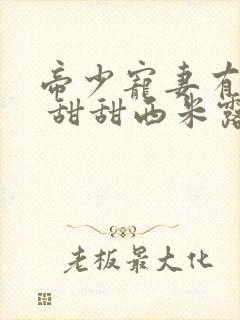 帝少寵妻有
甜甜西米露
老板最大化